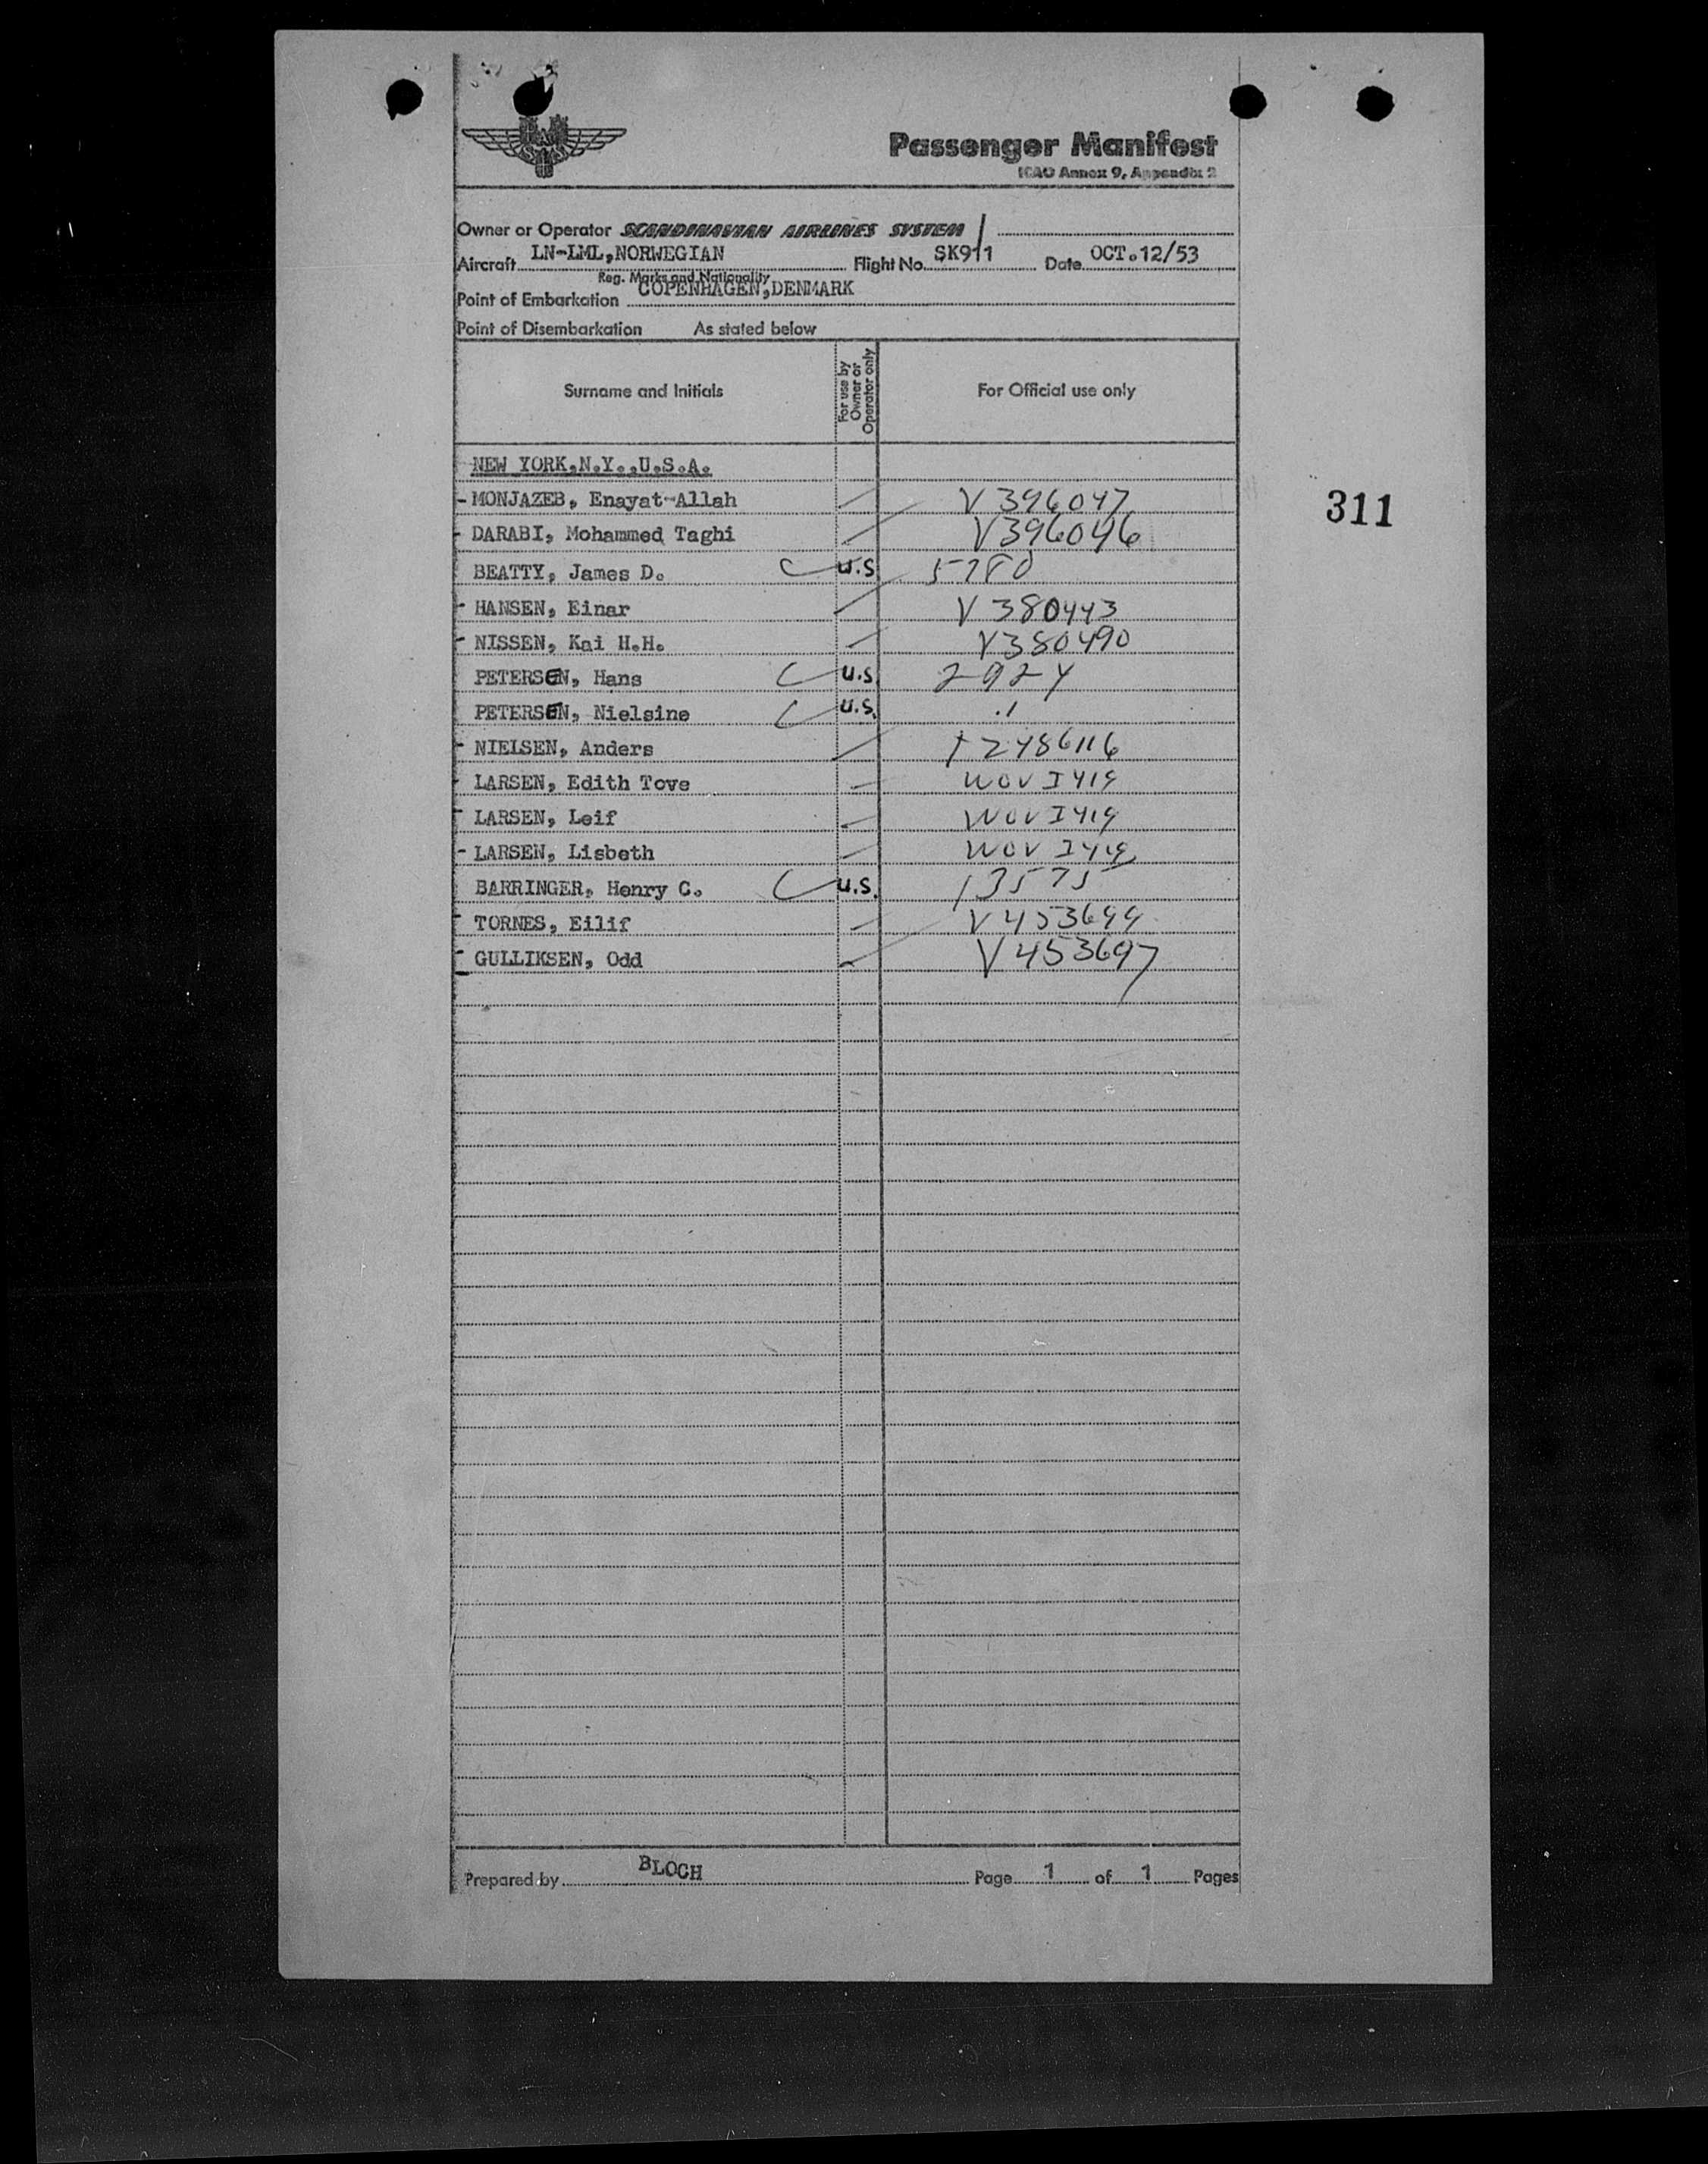 Passenger Manifest
ICAO Annex 9, Appendix 2
Owner or Operator SCANDINAVIAN AIRLINES SYSTEM
Aircraft LN-LML,NORWEGIAN Flight No. SK911 Date OCT.12/53
Reg. Marks and Nationality
Point of Embarkation COPENHAGEN,DENMARK
Point of Disembarkation As stated below
Surname and Initials For use by Owner or Operator only For Official use only
NEW YORK,N.Y.,U.S.A.
- MONJAZEB, Enayat-Allah V 396047
311
- DARABI, Mohammed Taghi V396046
BEATTY, James D. U.S 5780
- HANSEN, Einar V 380443
- NISSEN, Kai H.H. V380490
PETERSEN, Hans U.S. 2924
PETERSEN, Nielsine U.S.
- NIELSEN, Anders 2486116
- LARSEN, Edith Tove WOV I419
- LARSEN, Leif WOV I419
- LARSEN, Lisbeth WOV I419
BARRINGER, Henry C. U.S. 13575
- TORNES, Eilif V453699
- GULLIKSEN, Odd V453697
Prepared by BLOCH Page 1 of 1 Pages